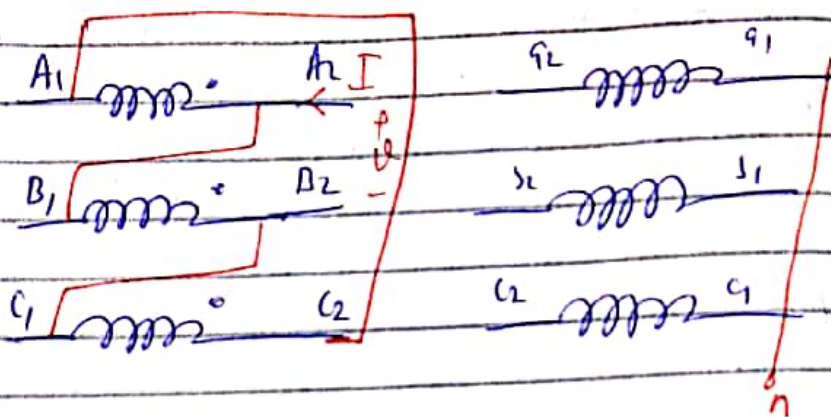 A1 A2 I a2 a1
+
B1 B2 v b2 b1
-
C1 C2 c2 c1
n